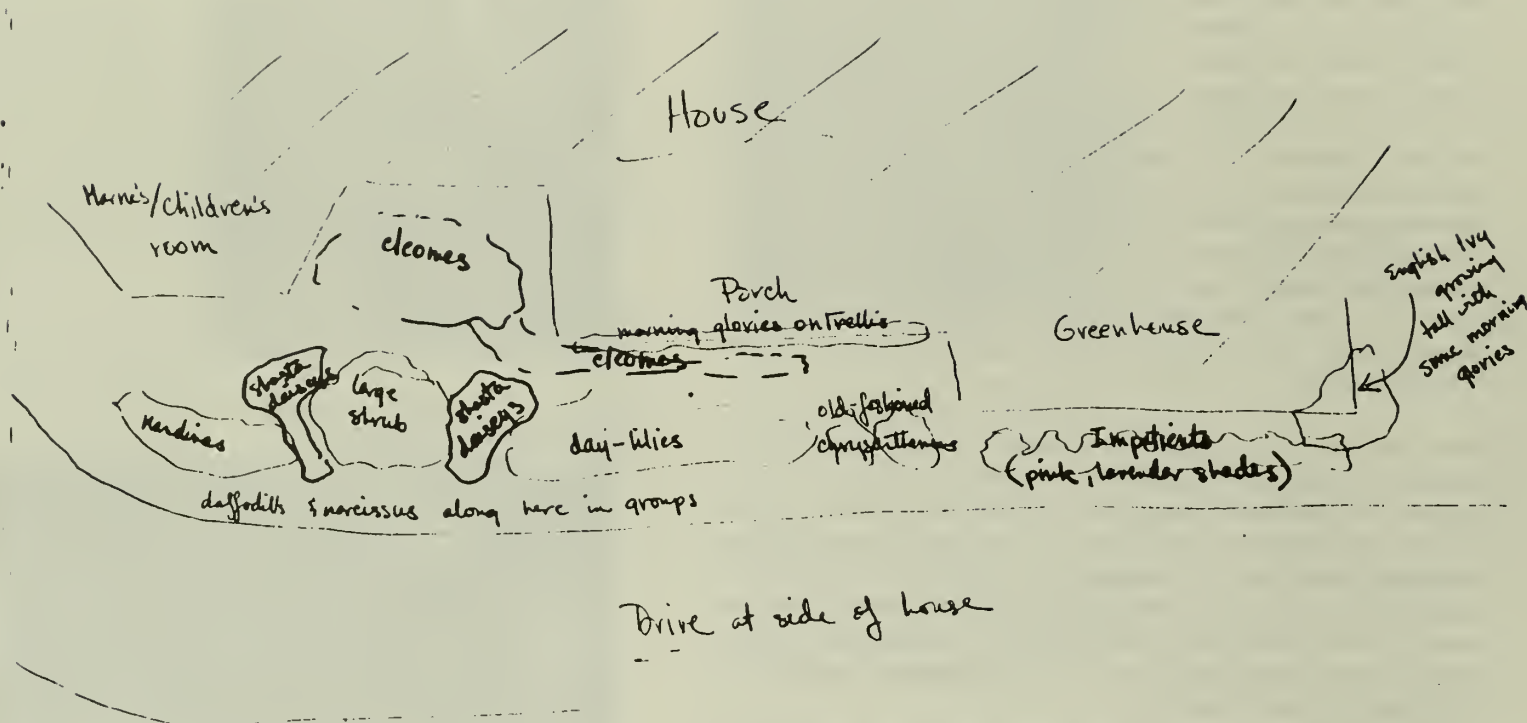 House
Marne's/Children's
room
cleomes
Porch
morning glories on Trellis
cleomes
Greenhouse
English Ivy
growing
tall with
some morning
glories
shasta
daiseys
large
shrub
shasta
daiseys
Nandinas
day-lilies
old-fashioned
Impatients
(pink, lavender shades)
daffodills & narcissus along here in groups
Drive at side of house